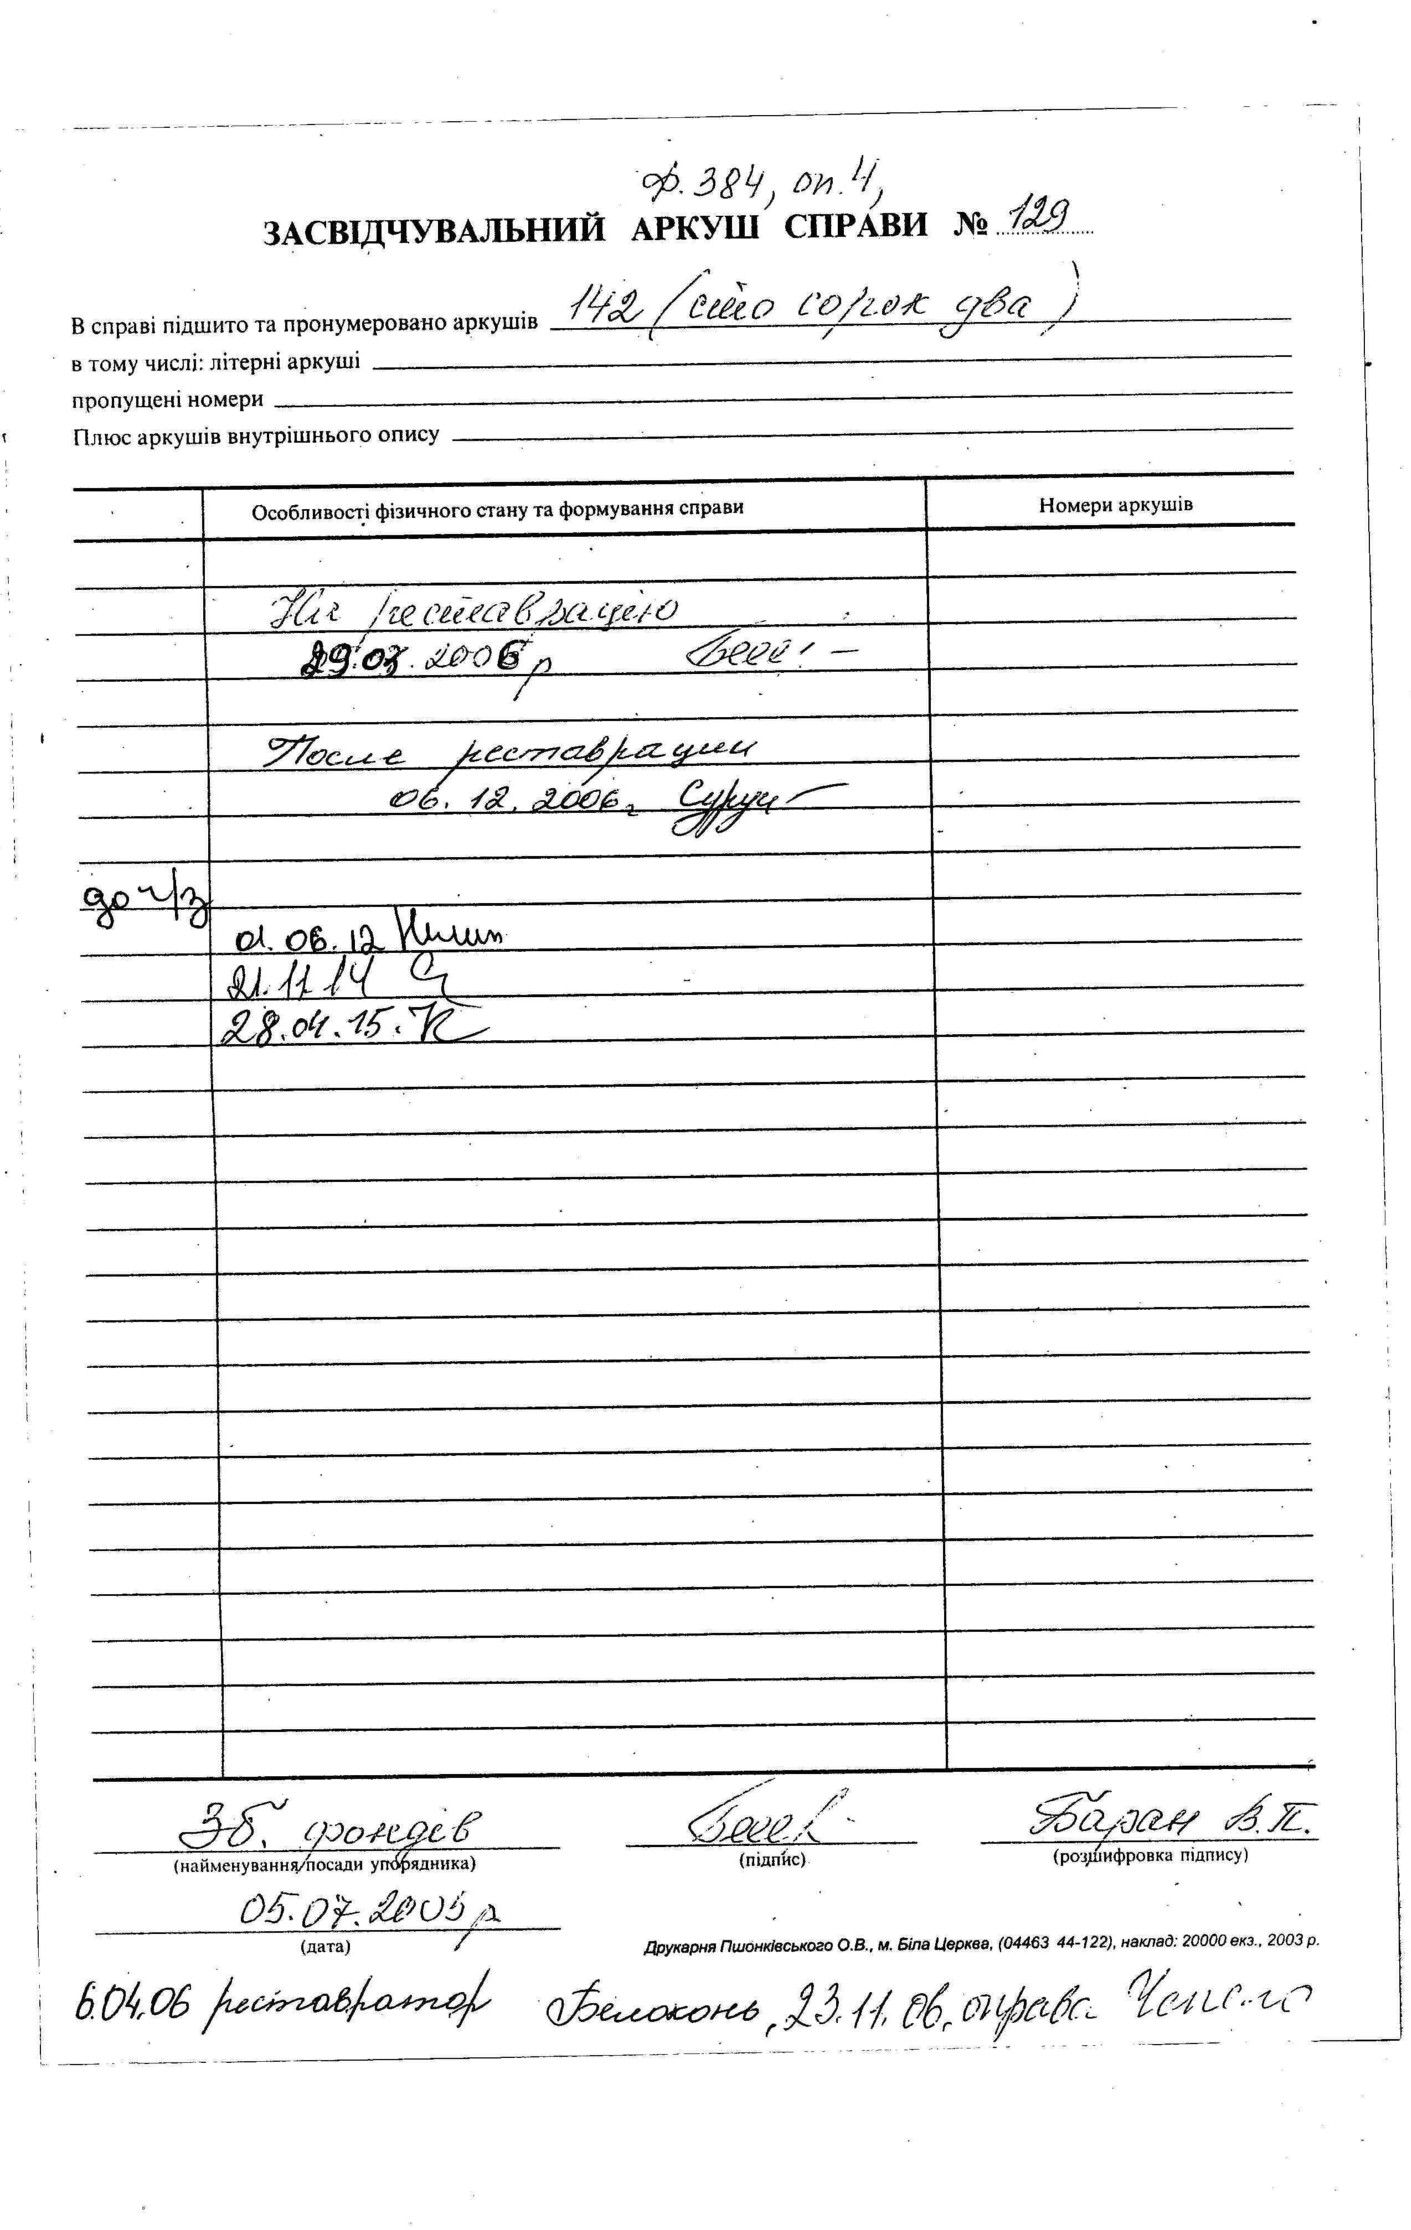 ф. 384, оп. 4,
ЗАСВІДЧУВАЛЬНИЙ АРКУШ СПРАВИ № 129
В справі підшито та пронумеровано аркушів 142 (сто сорок два)
в тому числі: літерні аркуші
пропущені номери
Плюс аркушів внутрішнього опису
Особливості фізичного стану та формування справи Номери аркушів
На реставрацію
29.03.2006 р
После реставрации
06.12.2006г
до ч/з
01.06.12
21.11 14
28.04.15.
Зб. фондів Баран В.П.
(найменування/посади упорядника) (підпис) (розшифровка підпису)
05.07.2005 р
(дата) Друкарня Пшонківського О.В., м. Біла Церква, (04463 44-122), наклад: 20000 екз., 2003 р.
6.04.06 реставратор Белоконь, 23.11.06, оправа